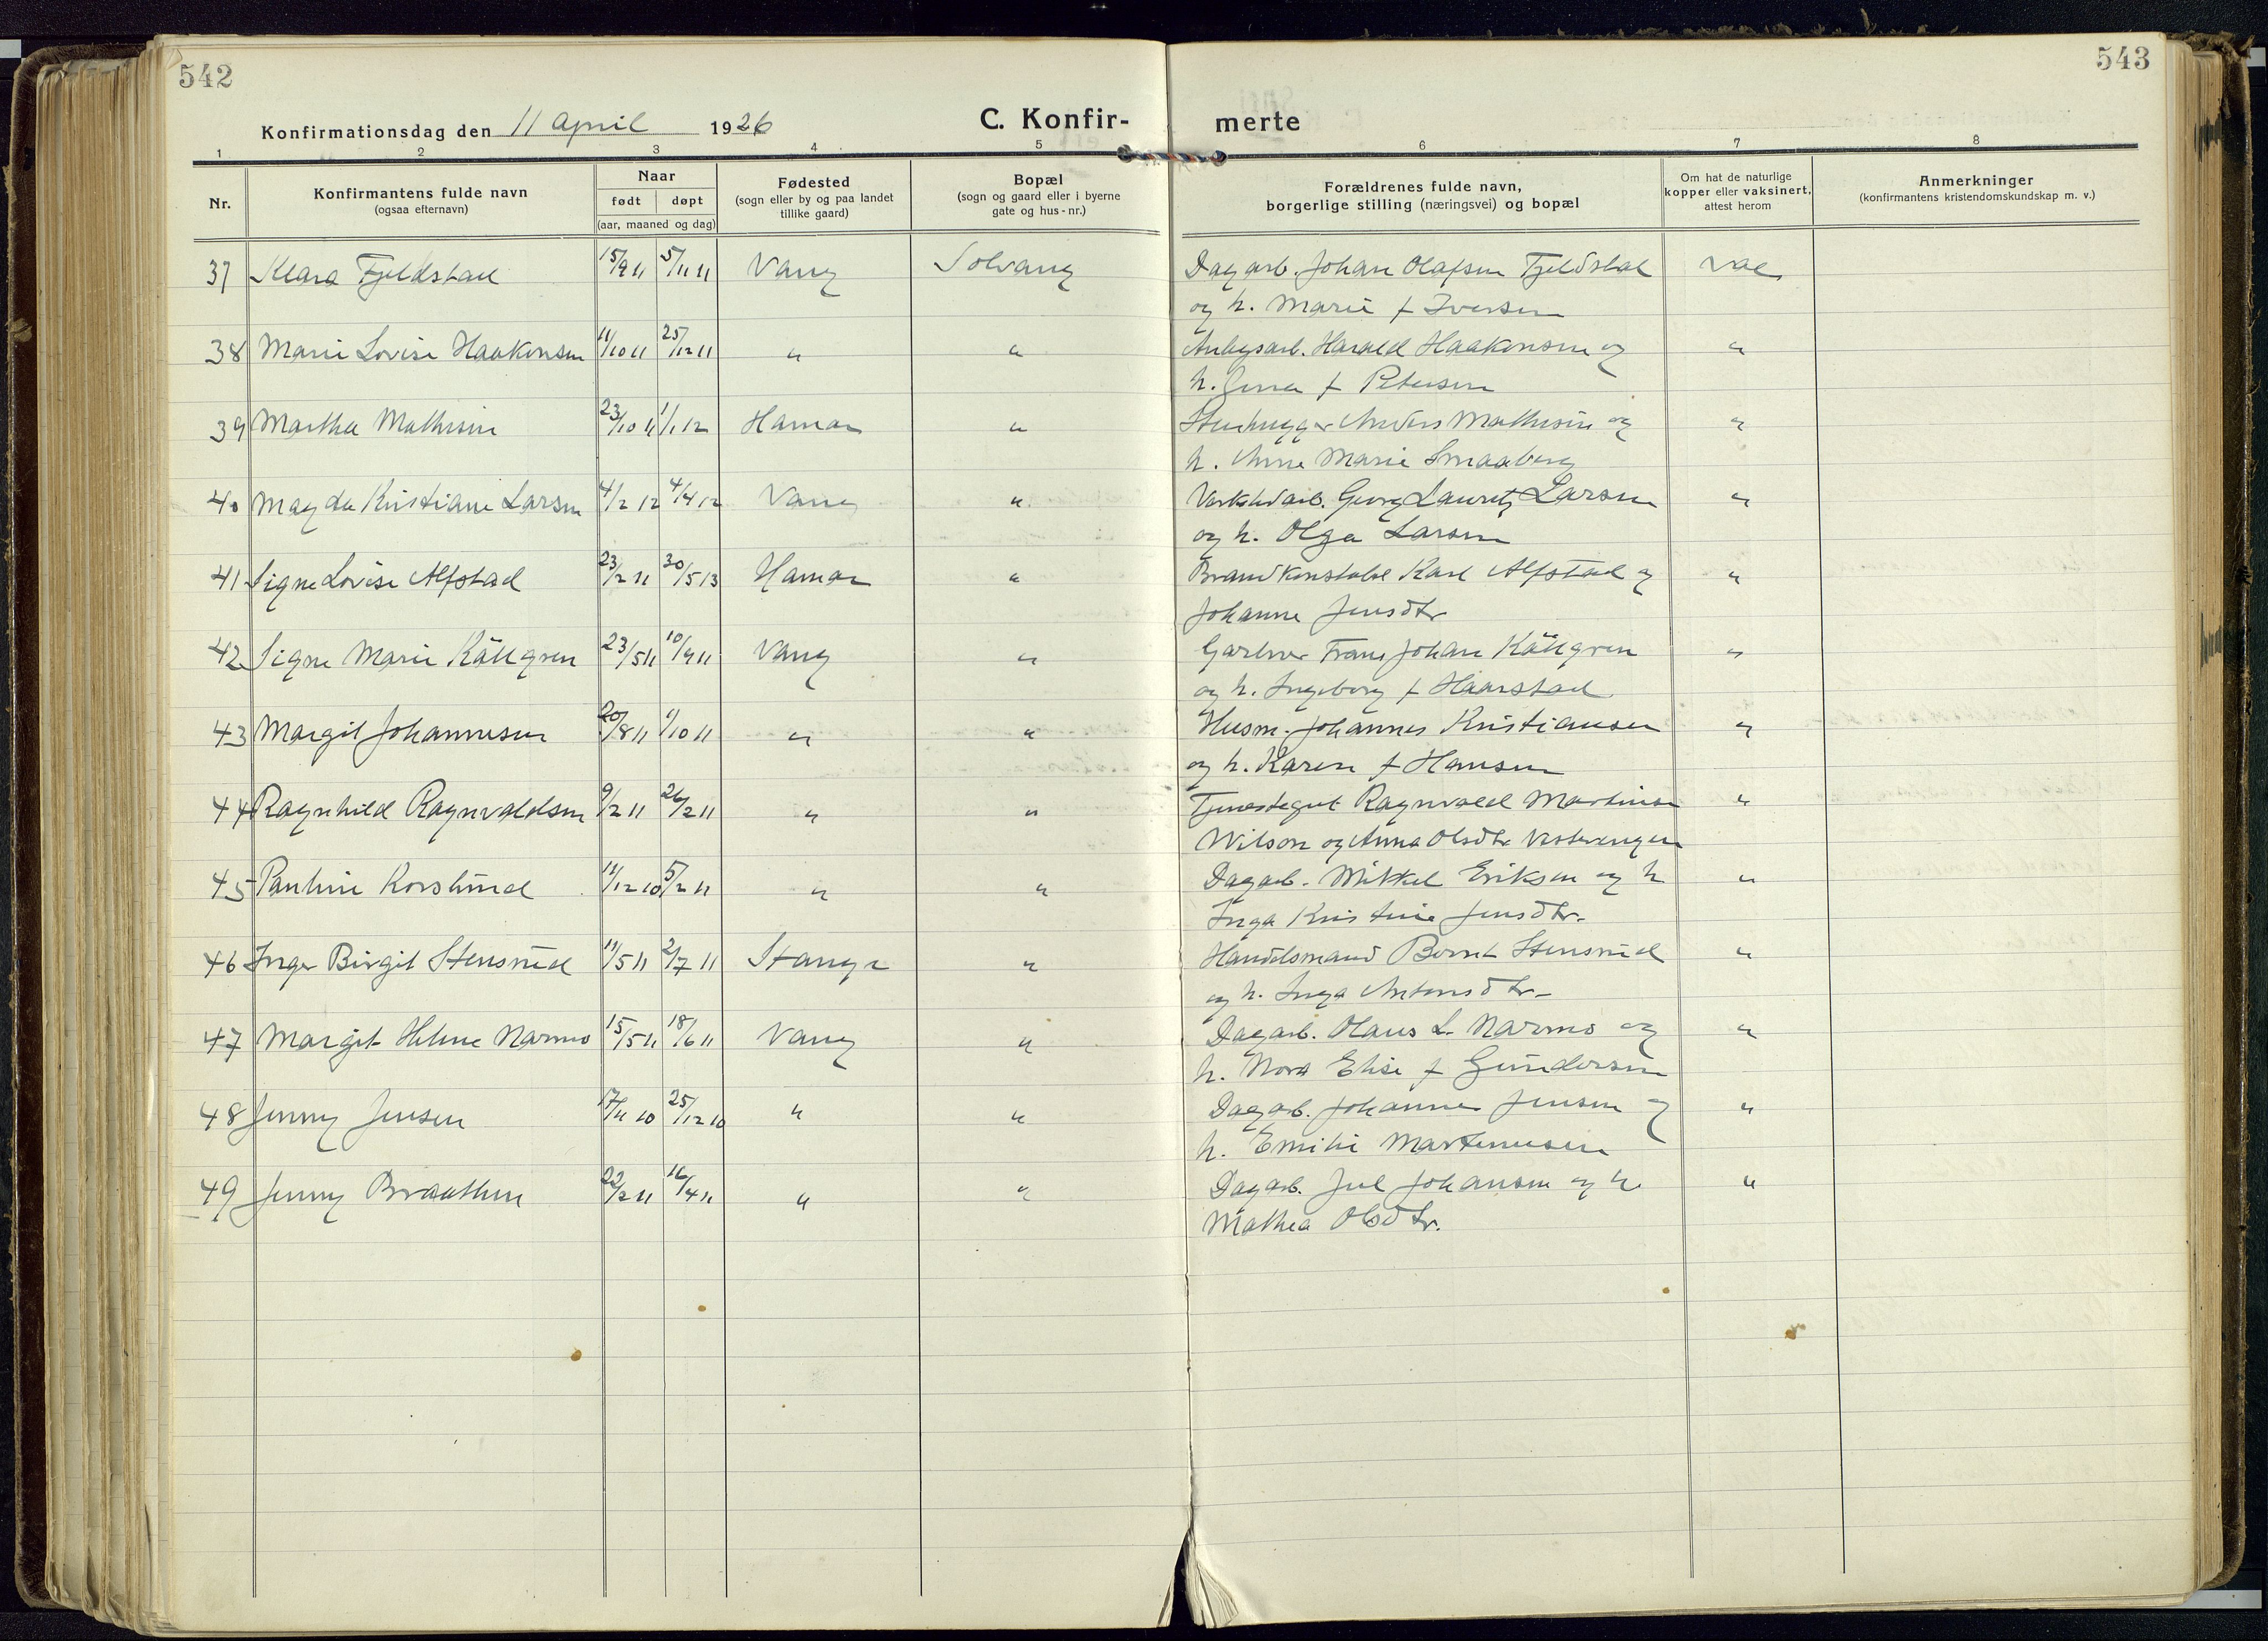 542
543
Konfirmationsdag den 11 april 1926
C. Konfir-
merte
1 2 3 4 5 6 7 8
Nr.
Konfirmantens fulde navn
(ogsaa efternavn)
Naar
født døpt
(aar, maaned og dag)
Fødested
(sogn eller by og paa landet
tillike gaard)
Bopæl
(sogn og gaard eller i byerne
gate og hus-nr.)
Forældrenes fulde navn,
borgerlige stilling (næringsvei) og bopæl
Om hat de naturlige
kopper eller vaksinert,
attest herom
Anmerkninger
(konfirmantens kristendomskundskap m. v.)
37 Klara Fjeldstad 15/9 11 5/11 11 Vang Solvang Dagarb. Johan Olafsen Fjeldstad vac
og h. Marie f Iversen
38 Marie Lovise Haakonsen 11/10 11 25/12 11 " " Harald Haakonsen og "
h. Jenna f Petersen
39 Martha Mathisen 23/10 11 1/1 12 Hamar " Stenhugger Anders Mathisen og "
h. Anne Marie Smaaberg
40 Magda Kristiane Larsen 4/2 12 4/4 12 Vang " Verkstedarb. Georg Lauritz Larsen "
og h. Olga Larsen
41 Signe Lovise Alfstad 23/2 11 30/5 13 Hamar " Brandkonstabel Karl Alfstad og "
Johanne Jensdtr
42 Signe Marie Källgren 23/5 11 10/9 11 Vang " Gartner Frans Johan Källgren "
og h. Ingeborg f Haarstad
43 Margit Johannesen 20/8 11 1/10 11 " " Husm. Johannes Kristiansen "
og h. Karen f Hansen
44 Ragnhild Ragnvaldsen 9/2 11 26/2 11 " " Tjenestegut Ragnvald Martinius "
Wilson og Anna Olsdtr Vestvangen
45 Pauline Korslund 11/12 10 5/2 11 " " Dagarb. Mikkel Eriksen og h "
Inga Kristine Jensdtr.
46 Inger Birgit Stensrud 11/5 11 2/7 11 Stange " Handelsmand Bernt Stensrud "
og h. Inga Antonsdtr
47 Margit Helene Narmo 15/5 11 18/6 11 Vang " Dagarb. Olaus L. Narmo og "
h. Nora Elise f Gundersen
48 Jenny Jensen 17/11 10 25/12 10 " " Dagarb. Johannes Jensen og "
h. Emilie Martinusen
49 Jenny Braathen 22/2 11 16/4 11 " " Dagarb. Jul Johansen og h. "
Mathea Olsdtr.